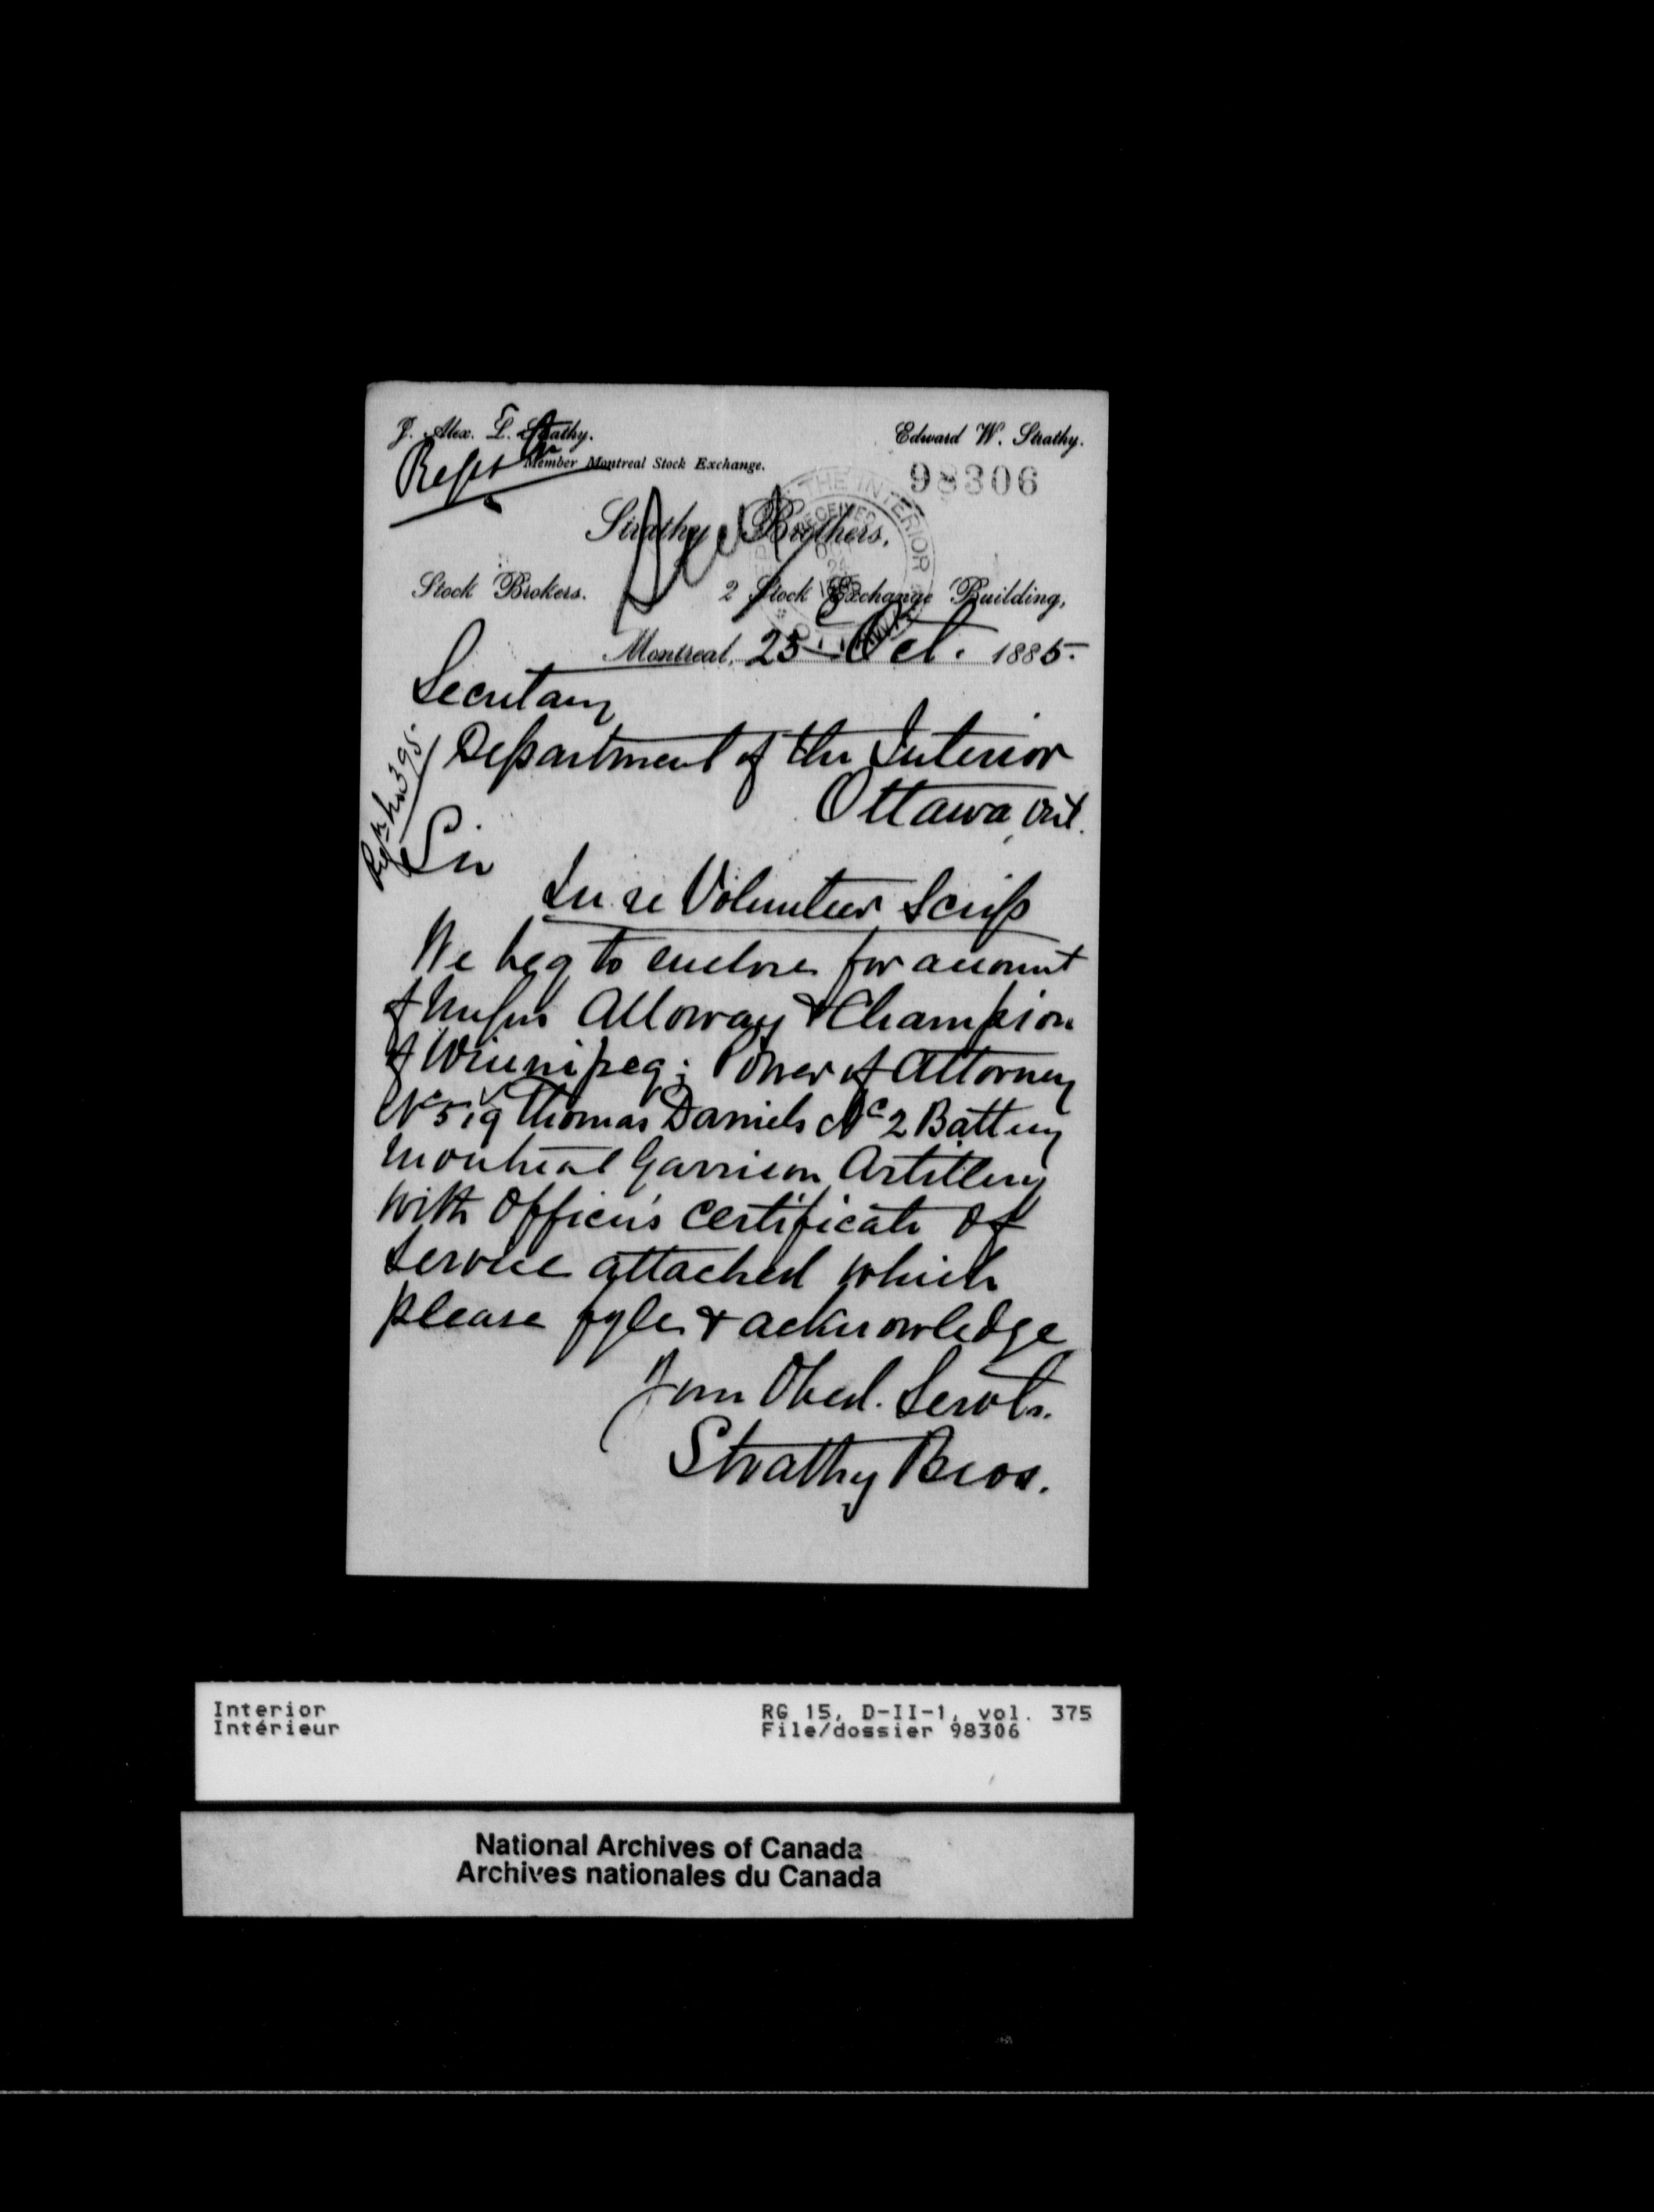 J. Alex. L. Strathy.
Edward W. Strathy.
Member Montreal Stock Exchange.
98306
Strathy Brothers,
THE INTERIOR
RECEIVED
Stock Brokers.
2 Stock Exchange Building,
Montreal, 23 Oct. 1885.
Secretary
Department of the Interior
Ottawa, Ont.
Sir
In re Volunteer Scrip
We beg to enclose for account
of Messrs Alloway & Champion
of Winnipeg; Power of Attorney
Thomas Daniels No 2 Battery
Montreal Garrison Artillery
With Officer's Certificate of
Service attached which
please fyle & acknowledge
Your Obed. Servts.
Strathy Bros.
Interior
Intérieur
RG 15, D-II-1, vol. 375
File/dossier 98306
National Archives of Canada
Archives nationales du Canada